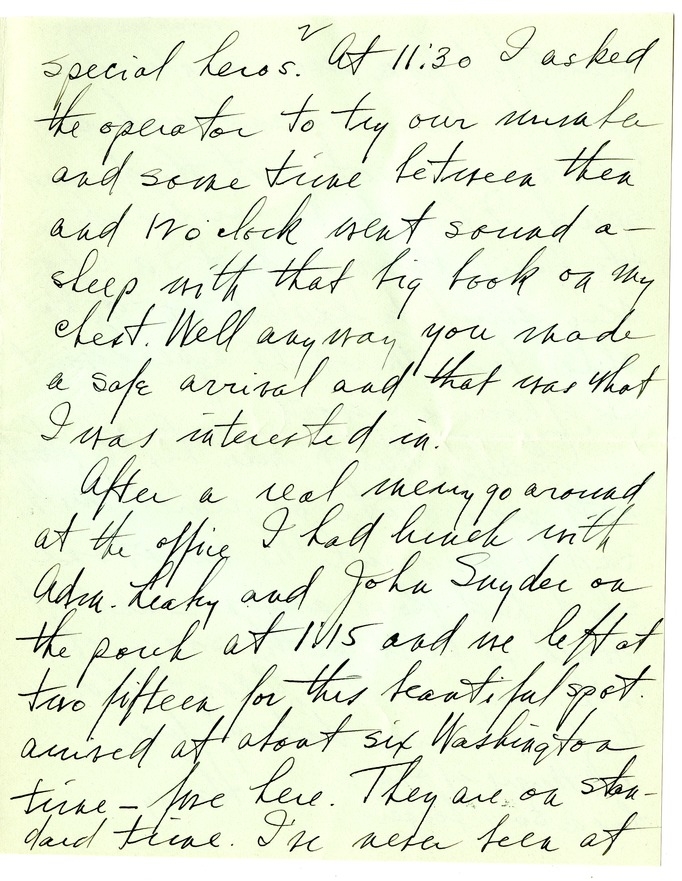 2
special heros. At 11:30 I asked
the operator to try our number
and some time between then
and 12 o'clock went sound a-
sleep with that big book on my
chest. Well anyway you made
a safe arrival and that was what
I was interested in.
After a real merry go around
at the office I had lunch with
Adm. Leahy and John Snyder on
the porch at 1:15 and we left at
two fifteen for this beautiful spot.
arrived at about six Washington
time – five here. They are on stan-
dard time. I've never been at